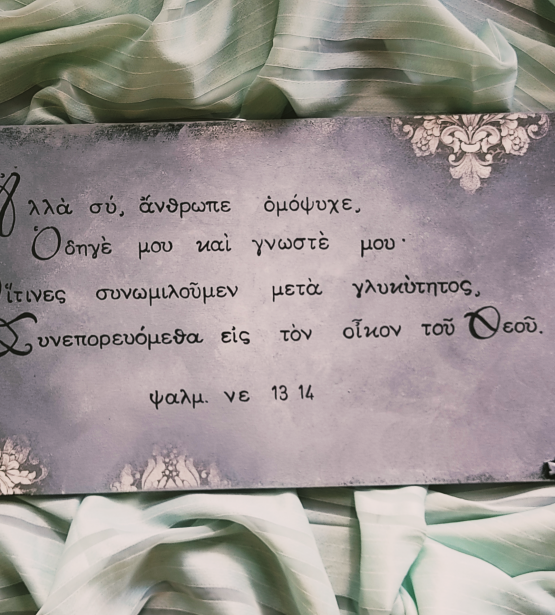 Ἀλλὰ σύ, ἄνθρωπε ὁμόψυχε,
Ὁδηγὲ μου καὶ γνωστὲ μου·
Οἵτινες συνωμιλοῦμεν μετὰ γλυκὺτητος,
Συνεπορευόμεθα εἰς τὸν οἶκον τοῦ Θεοῦ.
ψαλμ. νε 13 14